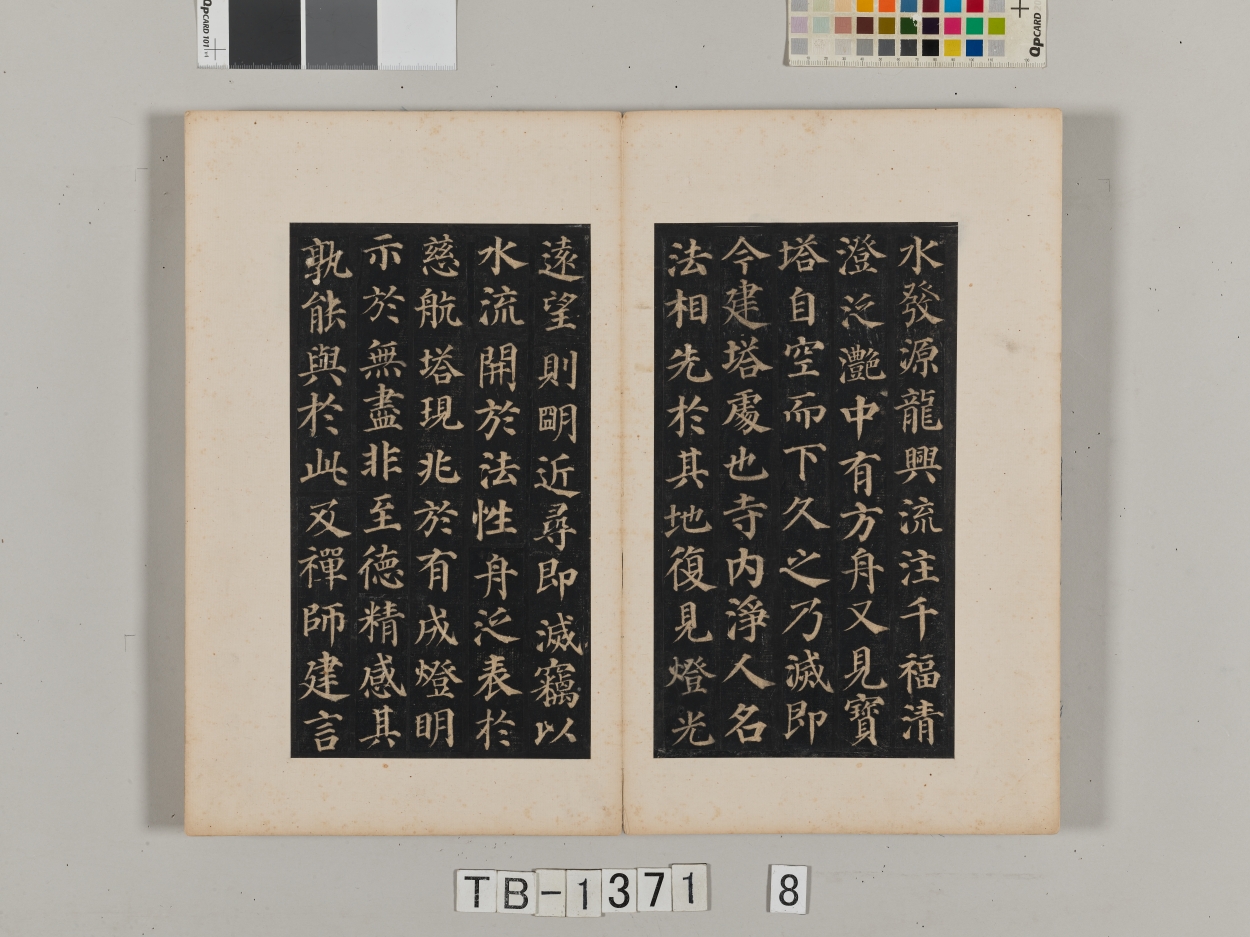 水發源龍興流注千福清
澄泛灩中有方舟又見寶
塔自空而下久之乃滅即
今建塔處也寺内淨人名
法相先於其地復見燈光
遠望則朙近尋即滅竊以
水流開於法性舟泛表於
慈航塔現兆於有成燈明
示於無盡非至德精感其
孰能與於此及禪師建言
TB-1371 8
QPCARD 101
QPCARD